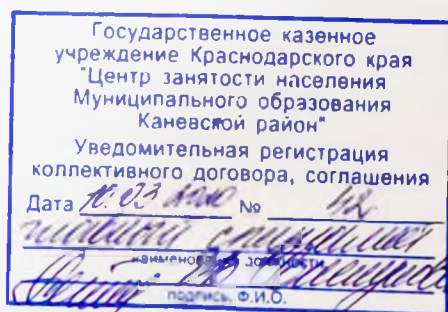 Государственное казенное
учреждение Краснодарского края
"Центр занятости населения
Муниципального образования
Каневской район"
Уведомительная регистрация
коллективного договора, соглашения
Дата 10.03 2020 №
главный специалист
наименование должности
подпись, Ф.И.О.